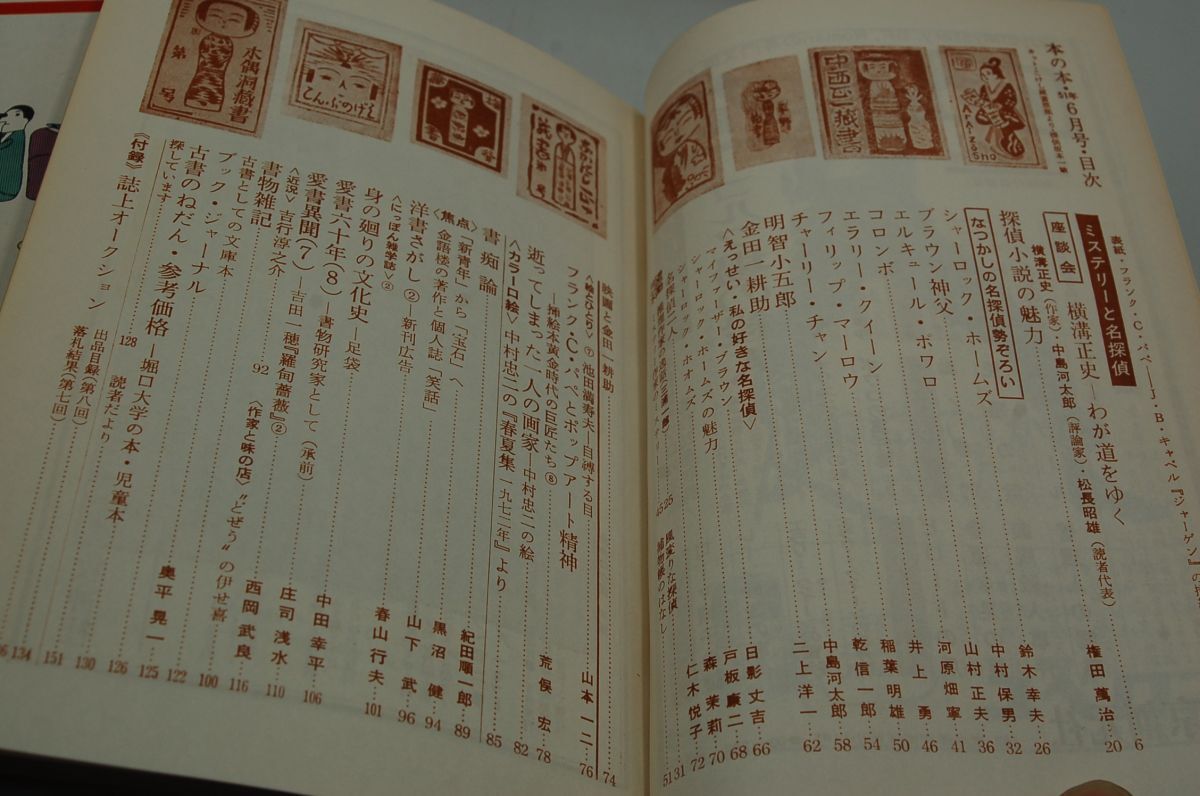 本の本 6月号・目次
表紙・フランク・C・パペ―J・B・キャベル『ジャーゲン』の
ミステリーと名探偵
座談会 横溝正史―わが道をゆく 6
横溝正史(作家)・中島河太郎(評論家)・松長昭雄(読者代表)
探偵小説の魅力 権田萬治 20
なつかしの名探偵勢ぞろい
シャーロック・ホームズ 鈴木幸夫 26
ブラウン神父 中村保男 32
エルキュール・ポワロ 山村正夫 36
コロンボ 河原畑寧 41
エラリー・クイーン 井上勇 46
フィリップ・マーロウ 稲葉明雄 50
チャーリー・チャン 乾信一郎 54
明智小五郎 中島河太郎 58
金田一耕助 二上洋一 62
〈えっせい・私の好きな名探偵〉
マイファーザー・ブラウン 日影丈吉 66
シャーロック・ホームズの魅力 戸板康二 68
シャーロック・ホオムズ 森茉莉 70
仁木悦子 72
風変りな探偵 31
51
25
45
映画と金田一耕助 山本一二 74
〈絵とひとり〉⑦ 池田満寿夫―自瀆する目 76
フランク・C・パペとポップアート精神
―挿絵本黄金時代の巨匠たち⑧ 荒俣宏 78
逝ってしまった一人の画家―中村忠二の絵 82
〈カラー口絵〉中村忠二の『春夏集一九七二年』より 85
書痴論 紀田順一郎 89
〈焦点〉「新青年」から「宝石」へ 黒沼健 94
金語楼の著作と個人誌「笑話」 山下武 96
洋書さがし②―新刊広告 春山行夫 101
〈にっぽん雑学誌②〉
身の廻りの文化史―足袋 中田幸平 106
愛書六十年(8)―書物研究家として(承前) 庄司浅水 110
愛書異聞(7)―吉田一穂『羅甸薔薇』② 西岡武良 116
〈近況〉吉行淳之介 92
〈作家と味の店〉“どぜう”の伊せ喜 100
書物雑記
古書としての文庫本 奥平晃一 122
ブック・ジャーナル 125
古書のねだん・参考価格―堀口大学の本・児童本 126
探しています 128
読者だより 130
《付録》誌上オークション 出品目録(第八回) 151
落札結果(第七回)
134
木偶洞蔵書
第 号
こんぶのげえ
中西正一蔵書